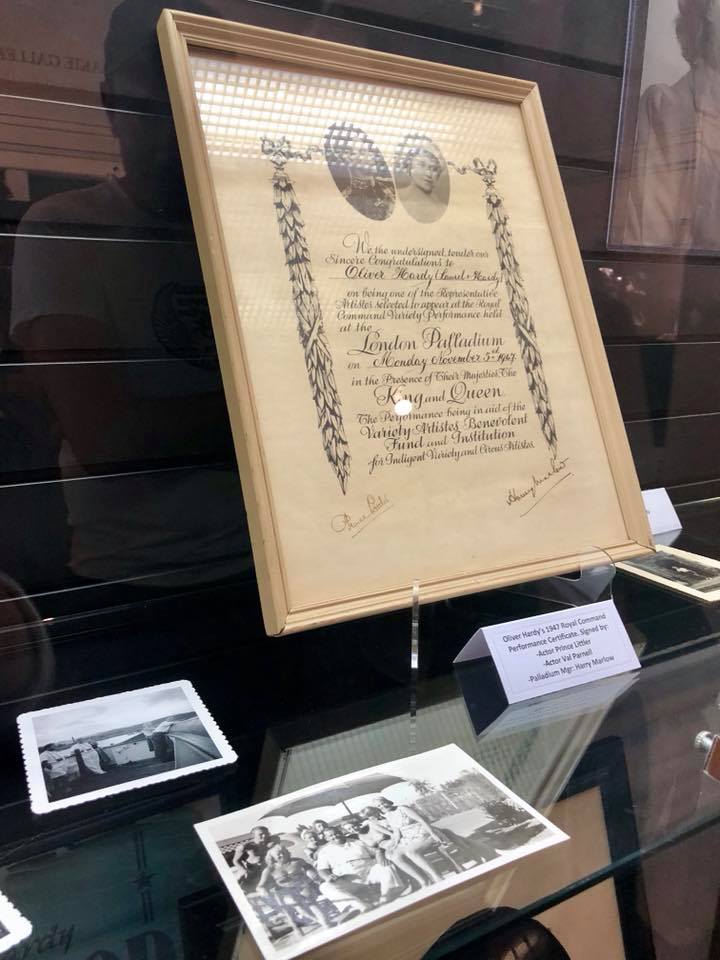 We the undersigned, tender our
Sincere Congratulations to
Oliver Hardy (Laurel & Hardy)
on being one of the Representative
Artistes selected to appear at the Royal
Command Variety Performance held
at the
London Palladium
on Monday November 3rd 1947
in the Presence of Their Majesties The
King and Queen
The Performance being in aid of the
Variety Artistes Benevolent
Fund and Institution
for Indigent Variety and Circus Artistes.
Harry Marlow
Oliver Hardy's 1947 Royal Command
Performance Certificate. Signed by:
-Actor Prince Littler
-Actor Val Parnell
-Palladium Mgr: Harry Marlow
ardy